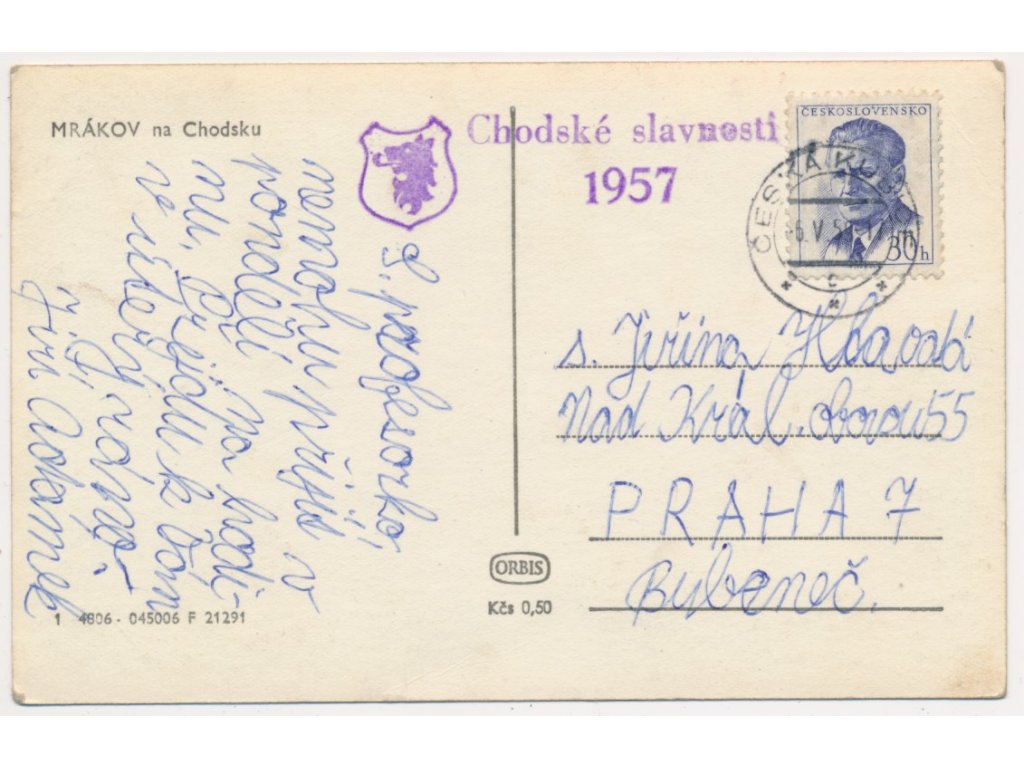 MRÁKOV na Chodsku
Chodské slavnosti
1957
ČESKOSLOVENSKO
30h
ČESKÁ
S. profesorko,
nemohu přijít v
pondělí na hodi-
nu. Přijdu k Vám
v úterý ráno.
Jiří Adamek
s. Jiřina Hlavatá
Nad Král. oborou 55
PRAHA 7
Bubeneč.
ORBIS
Kčs 0,50
1 4806 - 045006 F 21291